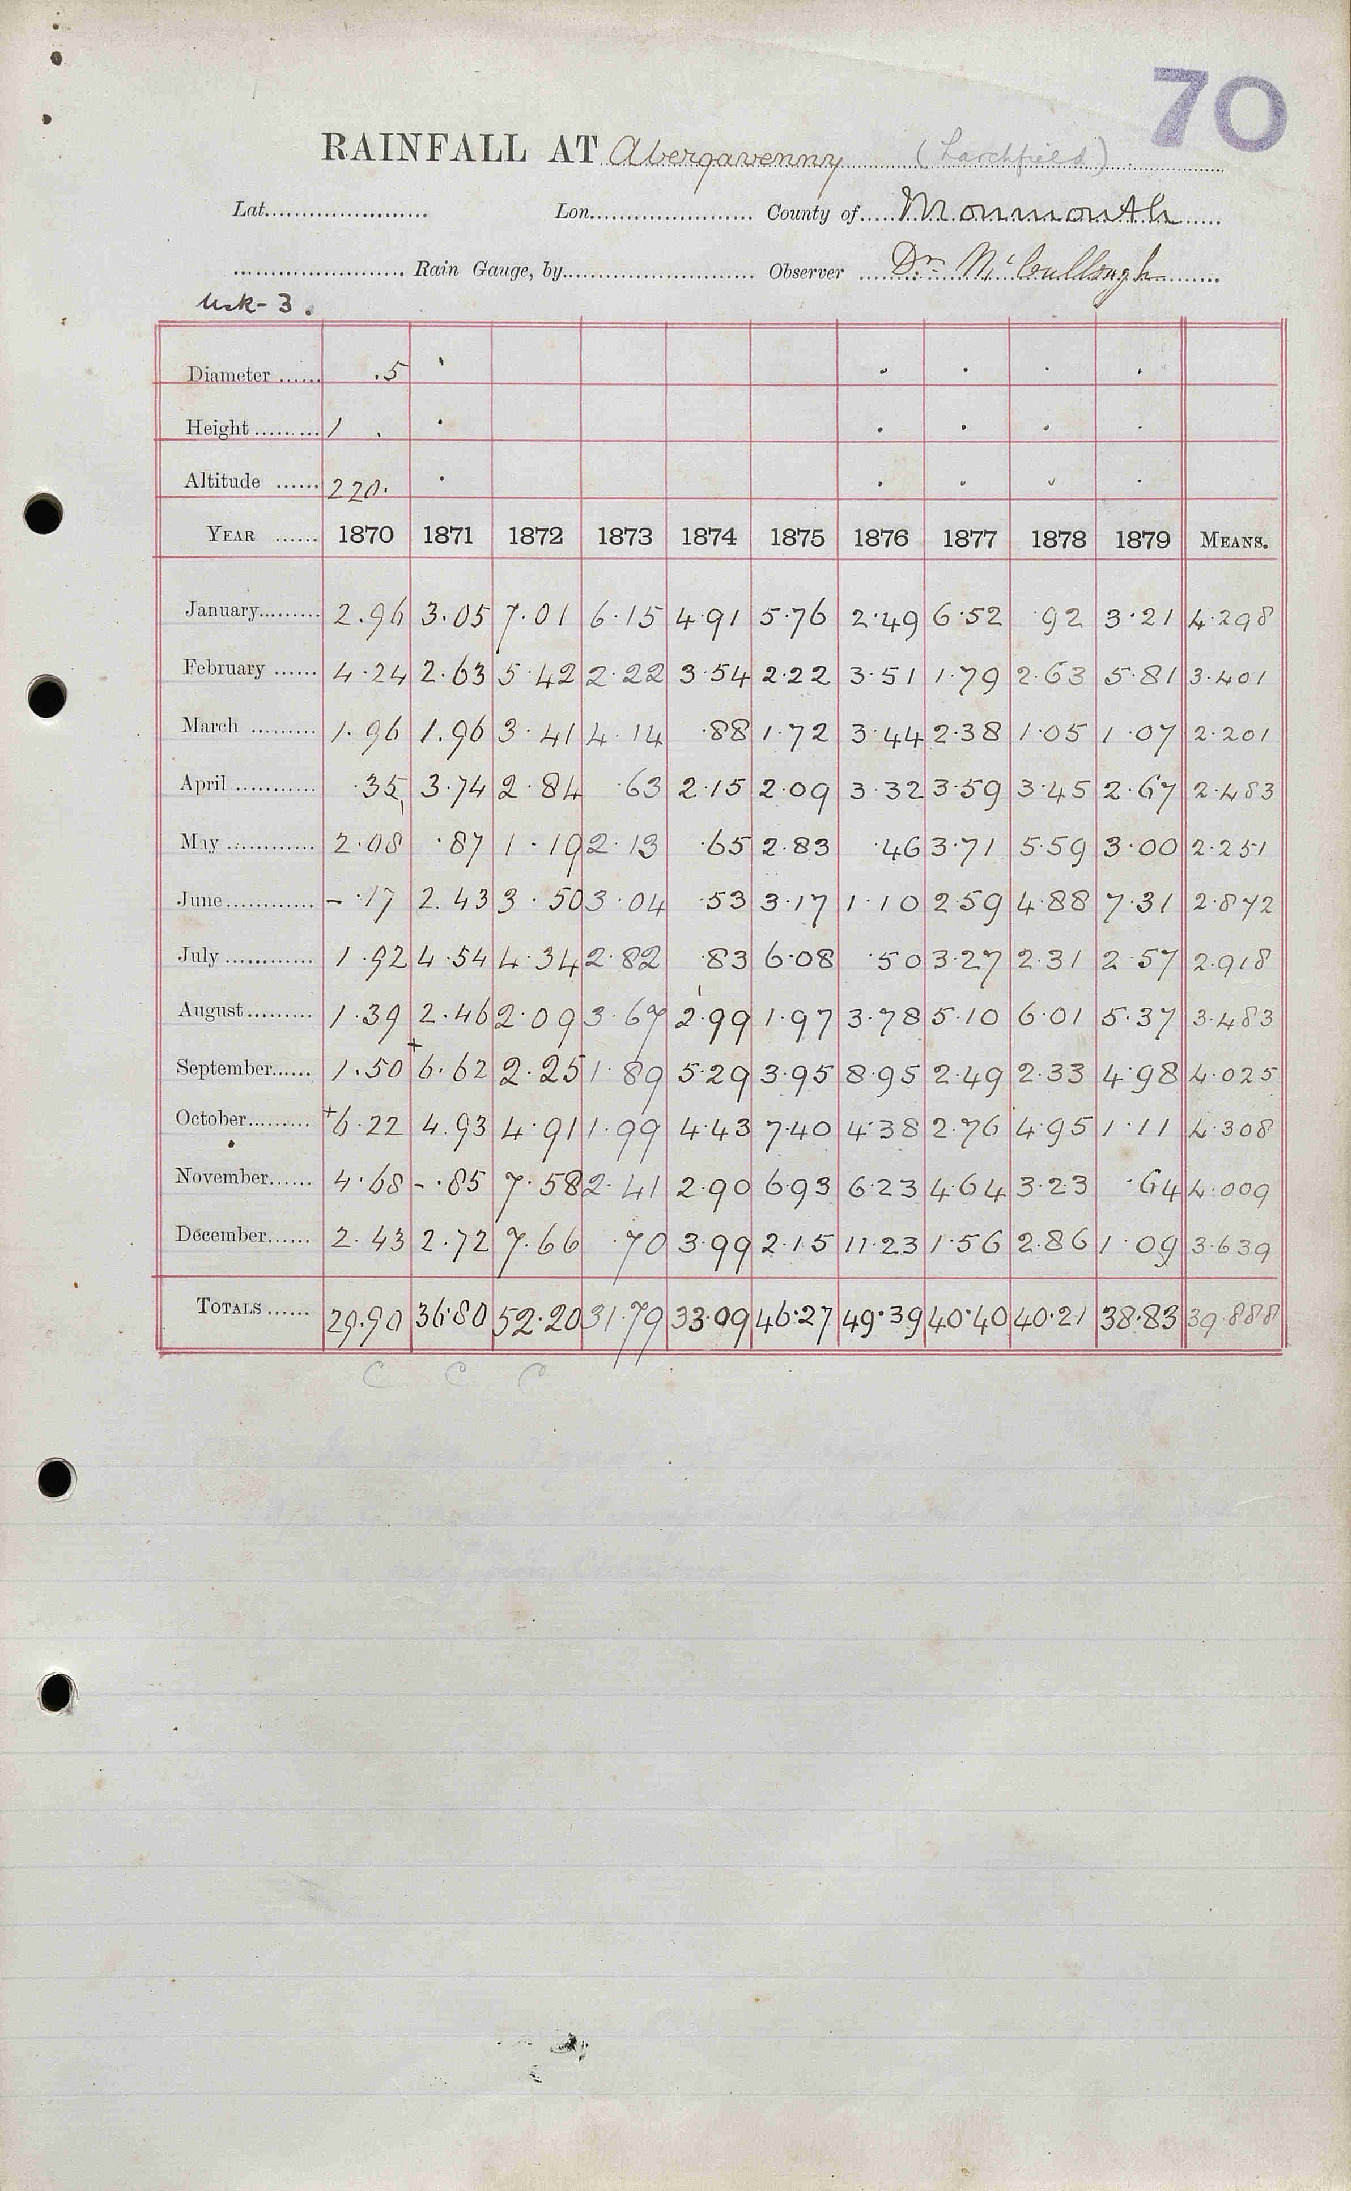 70
RAINFALL AT Abergavenny (Larchfield)
Lat. Lon. County of Monmouth
Rain Gauge, by Observer Dr. McCullough
Usk-3.
Diameter .5
Height 1 .
Altitude 220.
YEAR 1870 1871 1872 1873 1874 1875 1876 1877 1878 1879 MEANS.
January 2.96 3.05 7.01 6.15 4.91 5.76 2.49 6.52 .92 3.21 4.298
February 4.24 2.63 5.42 2.22 3.54 2.22 3.51 1.79 2.63 5.81 3.401
March 1.96 1.96 3.41 4.14 .88 1.72 3.44 2.38 1.05 1.07 2.201
April .35 3.74 2.84 .63 2.15 2.09 3.32 3.59 3.45 2.67 2.483
May 2.08 .87 1.19 2.13 .65 2.83 .46 3.71 5.59 3.00 2.251
June - .17 2.43 3.50 3.04 .53 3.17 1.10 2.59 4.88 7.31 2.872
July 1.92 4.54 4.34 2.82 .83 6.08 .50 3.27 2.31 2.57 2.918
August 1.39 2.46 2.09 3.67 2.99 1.97 3.78 5.10 6.01 5.37 3.483
September 1.50 +6.62 2.25 1.89 5.29 3.95 8.95 2.49 2.33 4.98 4.025
October +6.22 4.93 4.91 1.99 4.43 7.40 4.38 2.76 4.95 1.11 4.308
November 4.68 - .85 7.58 2.41 2.90 6.93 6.23 4.64 3.23 .64 4.009
December 2.43 2.72 7.66 .70 3.99 2.15 11.23 1.56 2.86 1.09 3.639
TOTALS 29.90 36.80 52.20 31.79 33.09 46.27 49.39 40.40 40.21 38.83 39.888
C C C